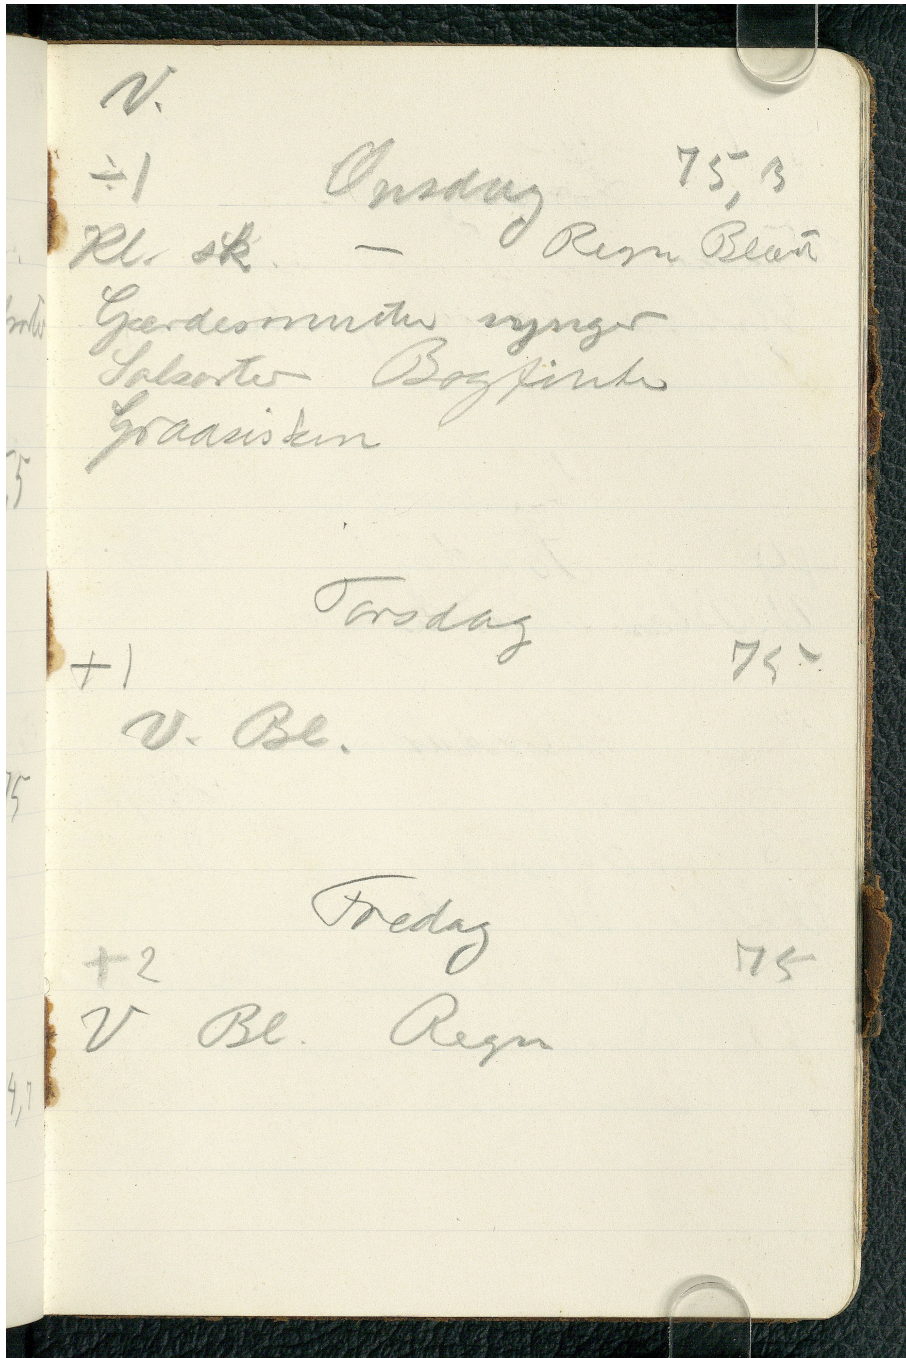 V.
÷1 Onsdag 75,3
Kl. sk. — Regn Blæst
Gærdesmutte synger
Solsorter Bogfinke
Graasisken
Torsdag
+1 75
V. Bl.
Fredag
+2 75
V Bl. Regn